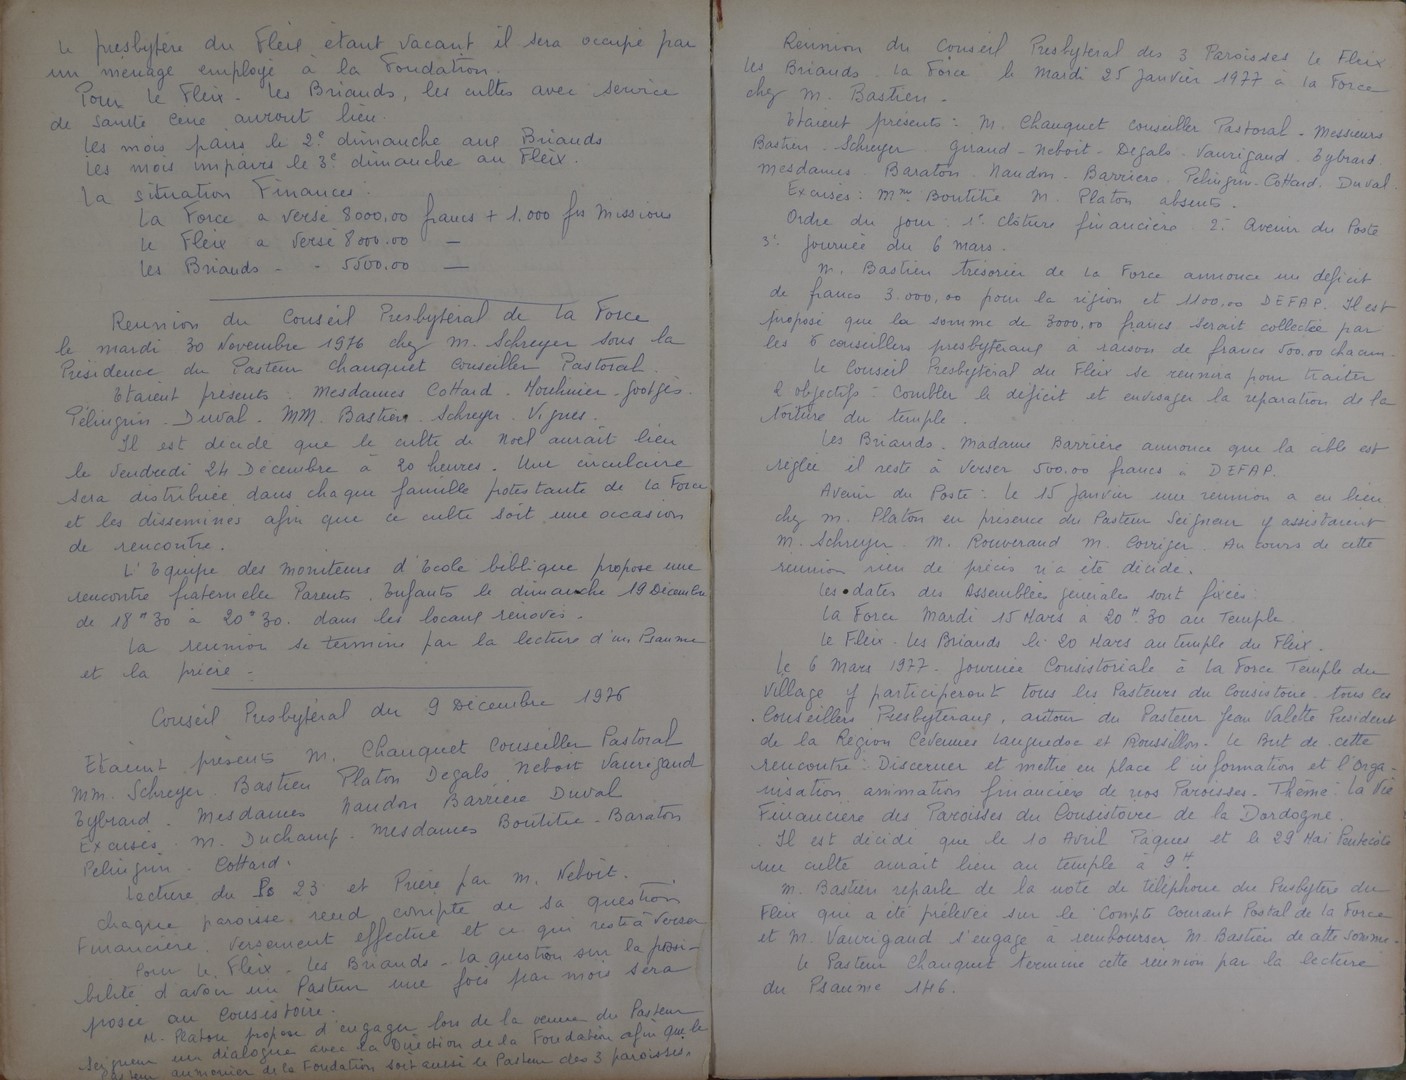 Le presbytère du Fleix étant vacant il sera occupé par
un ménage employé à la Fondation.
Pour le Fleix - les Briands, les cultes avec service
de Sainte Cène auront lieu
les mois pairs le 2e dimanche aux Briands
les mois impairs le 3e dimanche au Fleix.
La situation Finances :
La Force a versé 8000,00 francs + 1.000 frs Missions
Le Fleix a versé 8000.00 —
les Briands - - 5500,00 —
Reunion du Conseil Presbytéral de La Force
le mardi 30 Novembre 1976 chez M. Schreyer sous la
Présidence du Pasteur Chauquet Conseiller Pastoral.
Etaient présents : Mesdames Cottard - Mouhnier - Gootjès.
Pélingrin - Duval - MM. Bastien. Schreyer. Vignes.
Il est décidé que le culte de Noel aurait lieu
le vendredi 24 Décembre à 20 heures. Une circulaire
sera distribuée dans chaque famille protestante de La Force
et les disséminés afin que ce culte soit une occasion
de rencontre.
L'Equipe des Moniteurs d'Ecole biblique propose une
rencontre fraternelle Parents. Enfants le dimanche 19 Décembre
de 18H30 à 20H30. dans les locaux rénovés.
La reunion se termine par la lecture d'un Psaume
et la prière -
Conseil Presbytéral du 9 Décembre 1976
Etaient présents M. Chauquet Conseiller Pastoral
MM. Schreyer. Bastien Platon Degals. Neboit Vaurigaud
Eybrard. Mesdames Naudon Barrière Duval
Excusés. M. Duchamp. Mesdames Boutitie - Baraton
Pélingrin. Cottard.
Lecture du Ps 23 et Prière par M. Neboit.
Chaque paroisse rend compte de sa question
Financière. Versement effectué et ce qui reste à verser
Pour le Fleix - les Briands - La question sur la possi-
bilité d'avoir un Pasteur une fois par mois sera
posée au Consistoire.
M. Platon propose d'engager lors de la venue du Pasteur
Seigneur un dialogue avec la Direction de la Fondation afin que le
Pasteur aumonier de la Fondation soit aussi le Pasteur des 3 paroisses.
Reunion du Conseil Presbytéral des 3 Paroisses Le Fleix
les Briands. La Force le Mardi 25 Janvier 1977 à La Force
chez M. Bastien -
Etaient présents : M. Chauquet Conseiller Pastoral - Messieurs
Bastien - Schreyer. Giraud - Neboit - Degals - Vaurigaud. Eybrard
Mesdames. Baraton. Naudon - Barrière. Pélingrin - Cottard. Duval.
Excusés : Mme Boutitie M. Platon absents.
Ordre du jour : 1° clôture financière 2° Avenir du Poste
3° journée du 6 mars.
M. Bastien trésorier de La Force annonce un déficit
de francs 3.000,00 pour la région et 1100,00 DEFAP. Il est
proposé que la somme de 3000,00 francs serait collectée par
les 6 conseillers presbytéraux à raison de francs 500,00 chacun.
Le Conseil Presbytéral du Fleix se réunira pour traiter
2 objectifs : Combler le déficit et envisager la réparation de la
toiture du temple.
Les Briands. Madame Barrière annonce que la cible est
réglée il reste à verser 500.00 francs à DEFAP.
Avenir du Poste : Le 15 Janvier une reunion a eu lieu
chez M. Platon en présence du Pasteur Seigneur y assistaient
M. Schreyer. M. Rouveraud M. Corriger. Au cours de cette
reunion rien de précis n'a été décidé.
Les dates des Assemblées générales sont fixées :
La Force Mardi 15 Mars à 20H.30 au Temple.
Le Fleix - Les Briands le 20 Mars au temple du Fleix.
Le 6 Mars 1977 - Journée Consistoriale à La Force Temple du
Village y participeront tous les Pasteurs du Consistoire, tous les
Conseillers Presbytéraux, autour du Pasteur Jean Valette President
de la Région Cévennes Languedoc et Roussillon. Le But de cette
rencontre : Discerner et mettre en place l'information et l'Orga-
nisation animation financière de nos Paroisses - Thème : La Vie
Financière des Paroisses du Consistoire de la Dordogne.
Il est décidé que le 10 Avril Paques et le 29 Mai Pentecôte
un culte aurait lieu au temple à 9H
M. Bastien reparle de la note de téléphone du Presbytère du
Fleix qui a été prélevée sur le Compte Courant Postal de La Force
et M. Vaurigaud s'engage à rembourser M. Bastien de cette somme.
Le Pasteur Chauquet termine cette reunion par la lecture
du Psaume 146.